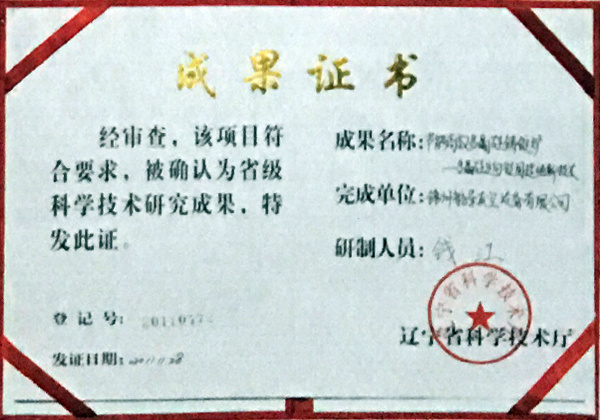 成果证书
经审查，该项目符
合要求，被确认为省级
科学技术研究成果，特
发此证。
登记号：
发证日期：2011.11.28
成果名称：
完成单位：锦州 真空设备有限公司
研制人员：钱江
辽宁省科学技术厅